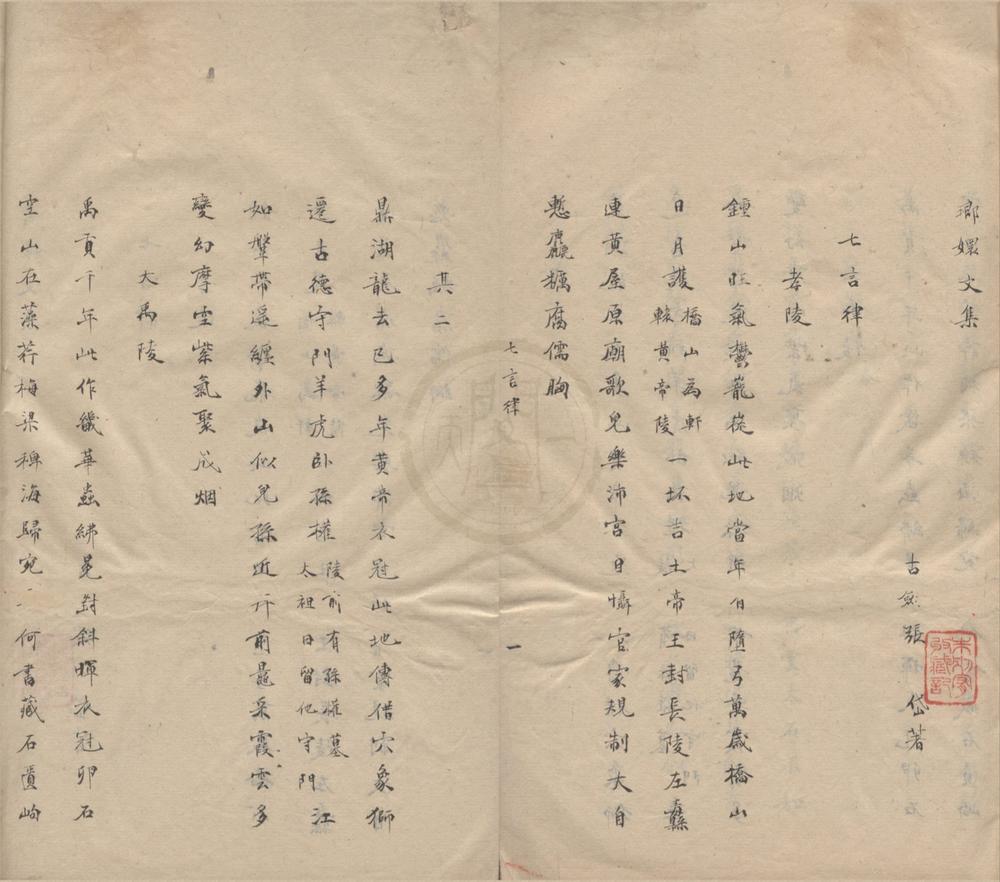 瑯嬛文集
古劍張 岱著
七言律
孝陵
鍾山旺氣鬱蘢從此地當年白墮弓萬歲橋山
日月護橋山為軒轅黃帝陵一抔吉土帝王封長陵左纛
連黃屋原廟歌兒樂沛宮日懾官家規制大自
慙麤糲腐儒胸
七言律
一
其二
鼎湖龍去已多年黃帝衣冠此地傳借穴象獅
遷古德守門羊虎臥孫權陵前有孫權墓太祖曰留他守門江
如鞶帶遥纏外山似兒孫近行前鼂采霞雲多
變幻摩空紫氣聚成烟
大禹陵
禹貢千年此作畿華蟲紼冕對斜暉衣冠卯石
空山在藻荇梅梁稗海歸宛二何書藏石匱岣
朱別宥收藏記